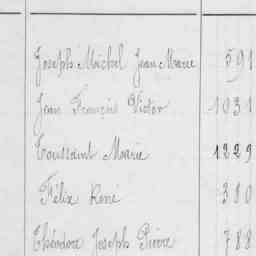 Joseph Michel Jean Marie 591
Jean François Victor 1031
Toussaint Marie 1229
Félix René 380
Théodore Joseph Pierre 788